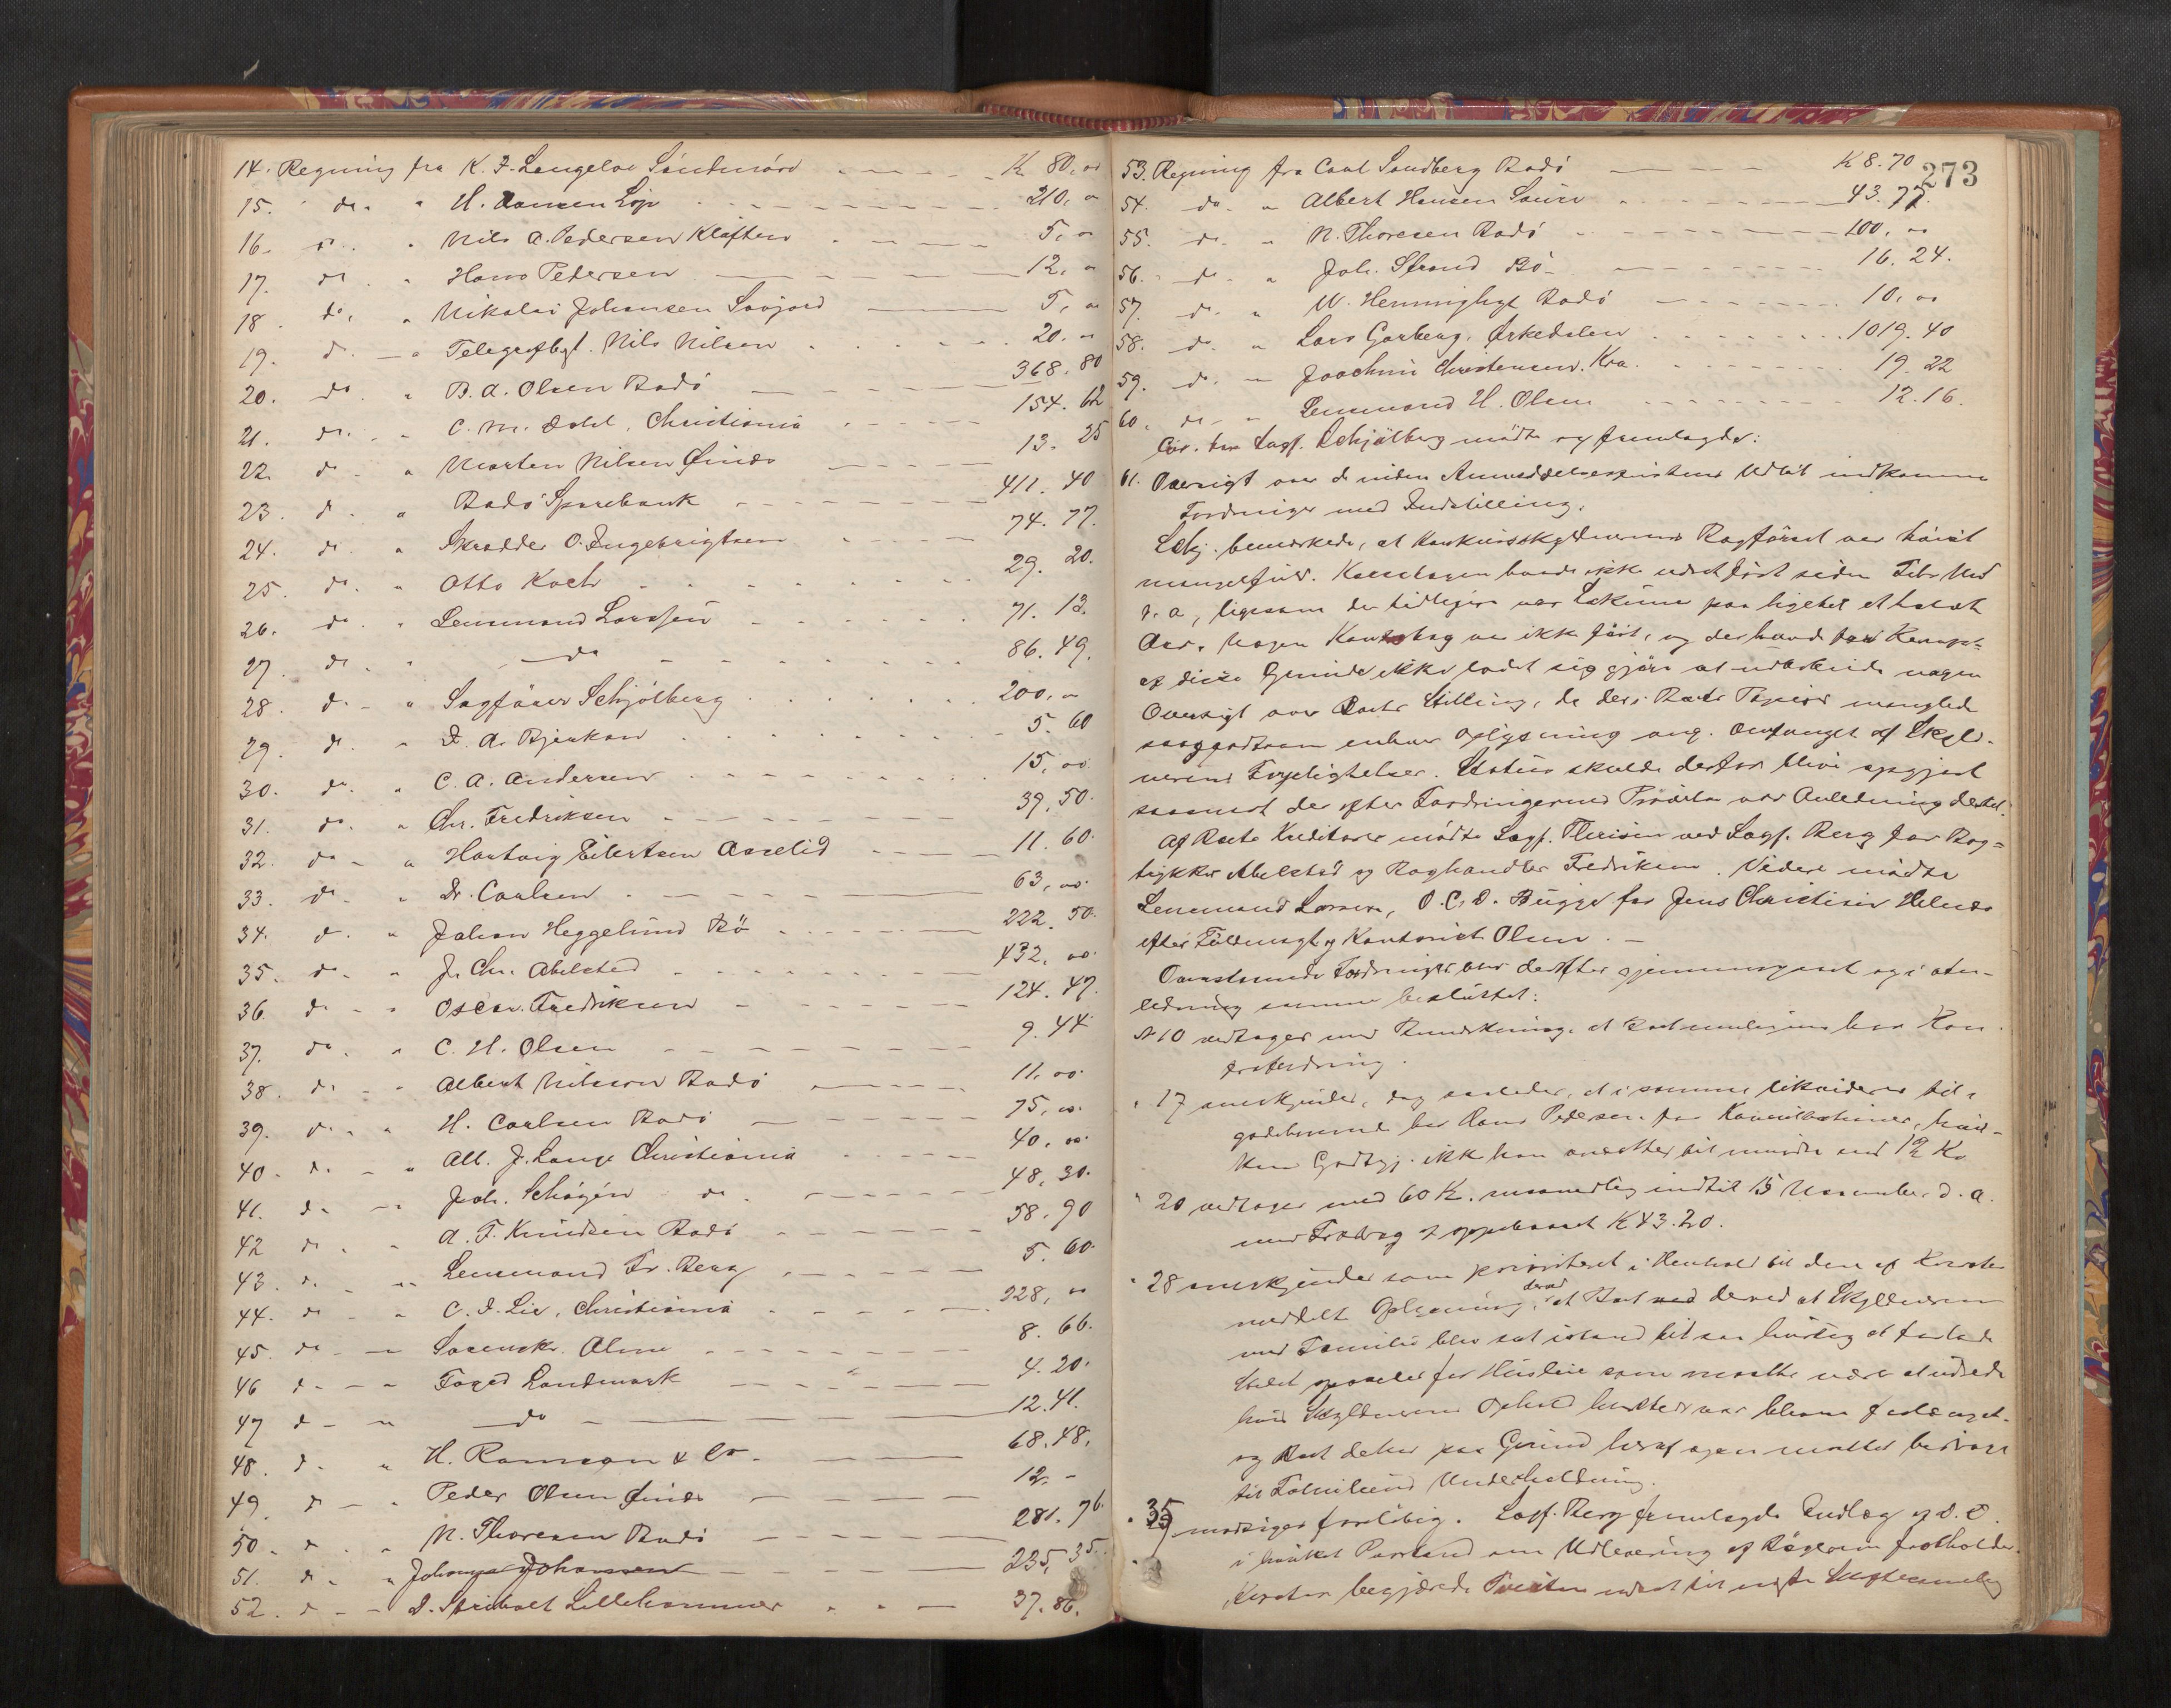 14. Regning fra K. F. Langeloe Søndmøre K. 80, 00
15. do. " H. Hansen Løp 210, "
16. do. " Nils A. Pedersen Kløften 5, "
17. do. " Hans Petersen 12, "
18. do. " Nikolai Johansen Saujord 5, "
19. do. " Telegrafbgt. Nils Nilsen 20, "
20. do. " B. A. Olsen Bodø 368. 80
21. do. " C. M. Dahl, Christiania 154. 62
22. do. " Morten Nilsen Øinæs 13. 25
23. do. " Bodø Sparebank 411. 40
24. do. " Skrædder O. Ingebrigtsen 74. 77.
25. do. " Otto Koch 29. 20.
26. do. " Lensmand Larssen 71. 13.
27. do. " do 86. 49.
28. do. " Sagfører Schjølberg 200. "
29. do. " F. A. Bjerkan 5. 60
30. do. " C. A. Andersen 15, 00.
31. do. " Chr. Fredriksen 39. 50.
32. do. " Hartvig Eilertsen Aaselid 11. 60.
33. do. " Dr. Carlsen 63, 00.
34. do. " Johan Heggelund Bø 222. 50.
35. do. " J. Chr. Abelsted 432. 00.
36. do. " Oscar Fredriksen 124. 47.
37. do. " C. H. Olsen 9. 44
38. do. " Albert Nilsen Bodø 11. 00.
39. do. " H. Carlsen Bodø 75, 00.
40. do. " Alb. J. Lange Christiania 40. 00.
41. do. " Joh. Schøgén do. 48. 30.
42. do. " A. F. Knudsen Bodø 58. 90
43. do. " Lensmand Fr. Berg 5. 60.
44. do. " C. F. Lie, Christiania 928, 00
45. do. " Sorenskr. Olme 8. 66.
46. do. " Foged Landmark 4. 20.
47. do. " do 12.41.
48. do. " H. Ramson & Co. 68.48.
49. do. " Peder Olsen Øinæs 12. -
50. do. " N. Thoresen Bodø 281. 76.
51. do. " Johanna Johansen 235, 35.
52. do. " D. Stribolt Lillehammer 37. 86.
273
53. Regning fra Carl Sandberg Bodø K 8. 70
54. do. " Albert Hansen Saur 43. 77.
55. do. " N. Thoresen Bodø 100, 00
56. do. " Joh. Strand Bø 16. 24.
57. do. " W. Hemmighyt Bodø 10, 00
58. do. " Lars Garberg, Ørkedalen 1019. 40
59. do. " Joachim Christensen. Kra. 19. 22
60. do. " Lensmand H. Olsen 12.16.
Sagf. Schjølberg mødte og fremlagde:
61. Oversigt over de inden Anmeldelsesfristens Udløb indkomne
Fordringer med Indstilling.
Schj. bemærkede, at Konkursskyldnerens Bogførsel var høist
mangelfuld. Kassabogen havde ikke været ført siden Febr Md
d. a, ligesom der tidligere var Lakune paa ligetil et halvt
Aar. Nogen Kontobog var ikke ført, og der havde
af disse Grunde ikke ladet sig gjøre at udarbeide nogen
Oversigt over Boets Stilling, da der i Boets Papirer manglede
saagodtsom enhver Oplysning ang. Omfanget af Skyld-
nerens Forpligtelser. Status skulde derfor blive opgjort
saasnart der efter Fordringernes Prøvelse var Anledning dertil.
Af Boets Kreditorer mødte Sagf. Thesen ved Sagf. Berg for Bog-
trykker Abelsted og Boghandler Fredriksen. Videre mødte
Lensmand Larssen, O. C. D. Bugge for Jens Christian Helnes
efter Fuldmagt og Kontorist Olsen. -
Fordringer blev derefter gjennemgaaet og i An-
ledning samme besluttet:
N 10 vedtages med Bemærkning, at Boet muligens har Kon-
trafordring.
" 17 anerkjendes, dog saaledes, at i samme likvideres til-
godehavende hos Hans Pedersen for hvil-
ken Godtgj. ikke kan ansættes til mindre end 12 Kr
" 20 vedtages med 60 K. maanedlig indtil 15 November d. a.
med Fradrag af oppebaaret K 43.20.
" 28 anerkjendes som prioriteret i Henhold til den af Kurator
meddelte Oplysning derved, at Boet ved derved at Skyldneren
med Familie blev sat istand til saa hurtig at forlade
Stedet sparedes for Husleie som maatte være at udrede
hvis Skyldnerens Ophold hersteds var bleven forlænget.
og Boet deher paa Grund heraf ogsaa maattet bidrage
til Familiens Underholdning.
" 35 modsiges foreløbig. Sagf. Berg fremlagde Indlæg af d. D.
i hvilket Paastand om Udlevering af Bøgerne fastholdes.
Kurator begjærede Tvisten udsat til næste Skiftesamling